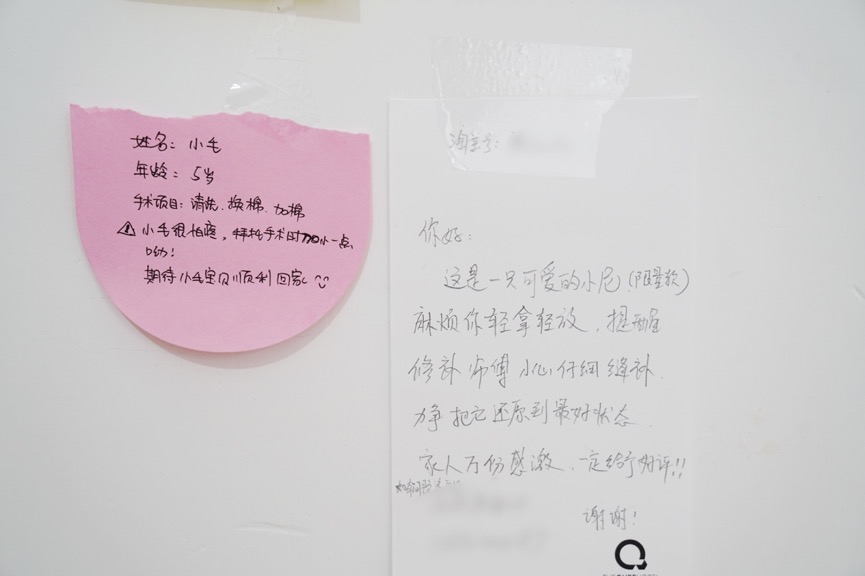 姓名：小毛
年龄：5岁
手术项目：清洗、换棉、加棉
⚠小毛很怕疼，拜托手术时小一点
呦！
期待小毛宝贝顺利回家
淘宝号：
你好：
这是一只可爱的小尼（限量款）
麻烦你轻拿轻放，提醒
修补师傅小心仔细缝补.
力争把它还原到最好状态.
家人万份感激、一定给予好评！！
谢谢！